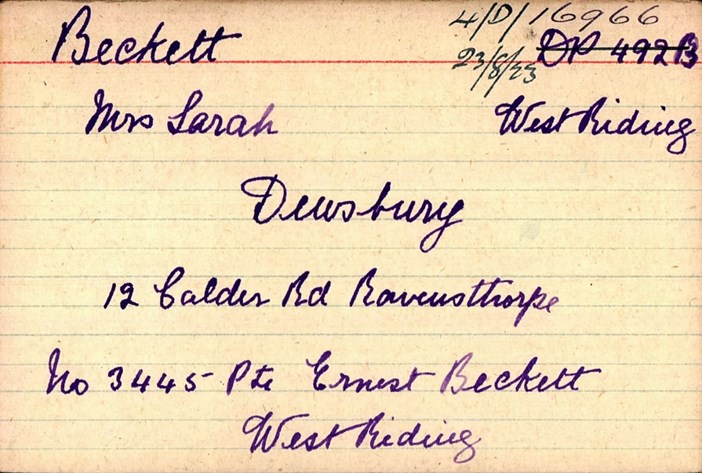 Beckett 4/D/16966
23/8/23 DP 492B
Mrs Sarah West Riding
Dewsbury
12 Calder Rd Ravensthorpe
No 3445 Pte Ernest Beckett
West Riding